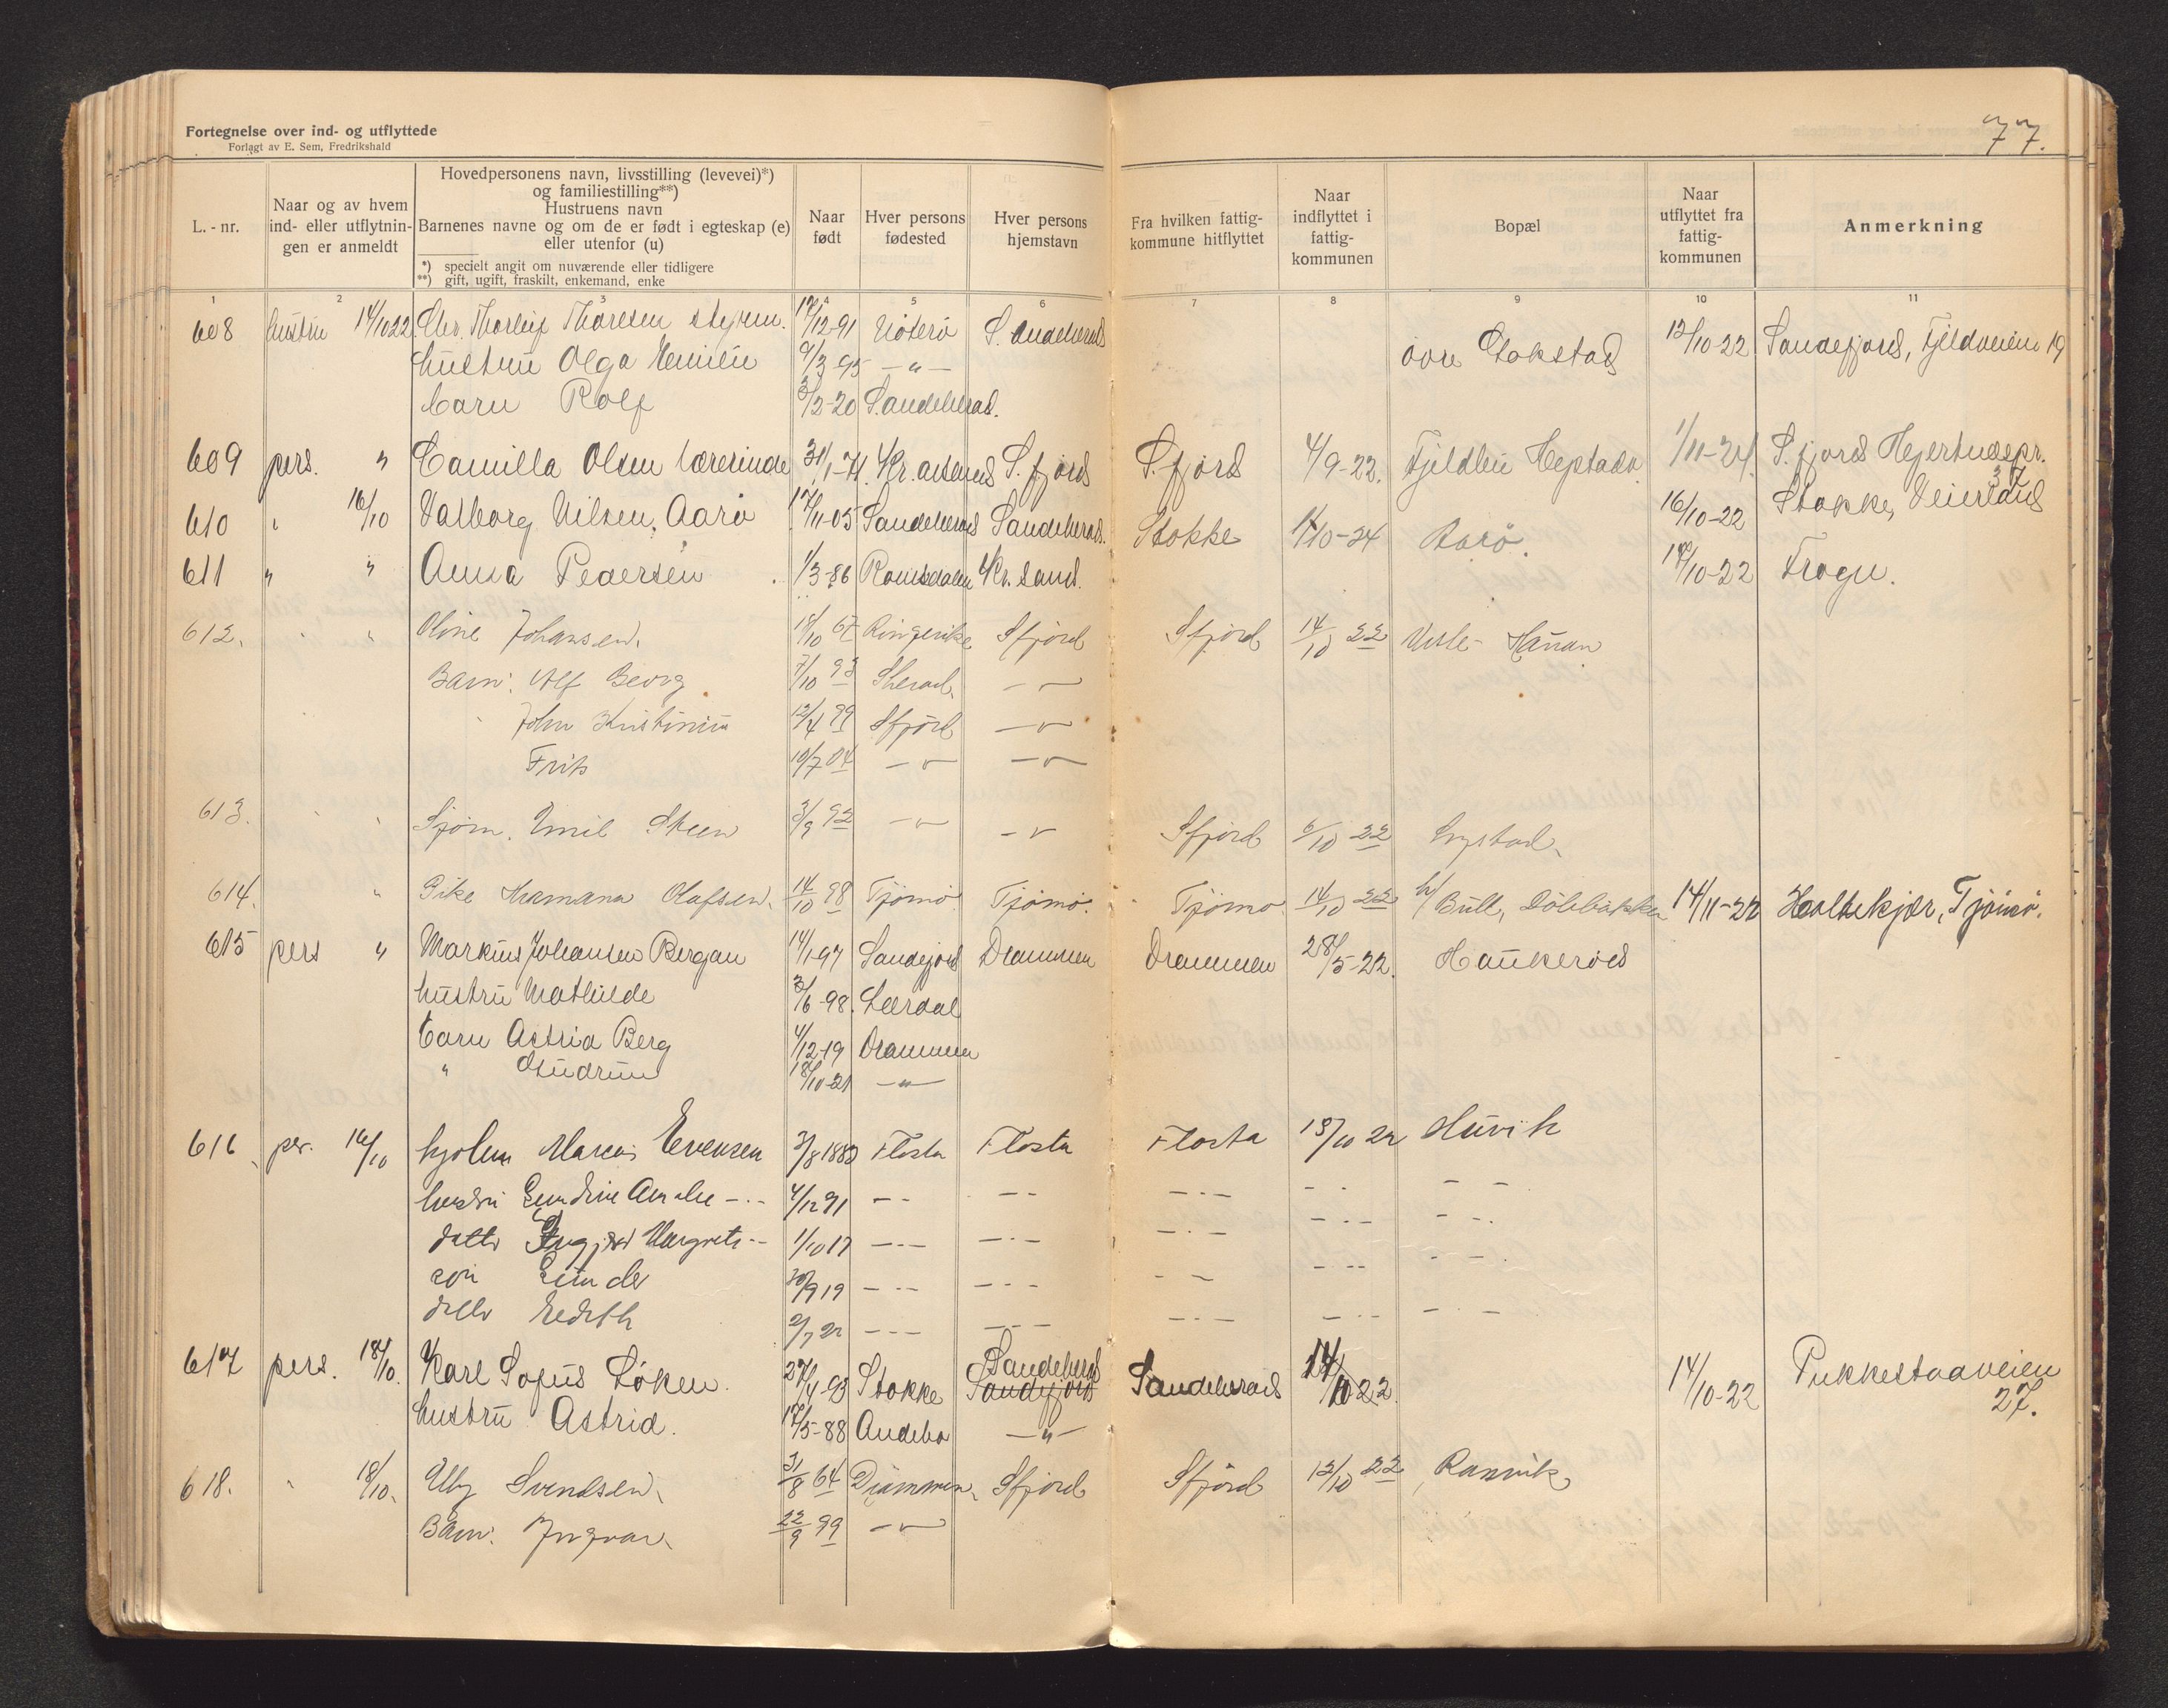 Fortegnelse over ind- og utflyttede
Forlagt av E. Sem, Fredrikshald
77.
L. - nr.
Naar og av hvem ind- eller utflytnin- gen er anmeldt
Hovedpersonens navn, livsstilling (levevei)*)
og familiestilling**)
Hustruens navn
Barnenes navne og om de er født i egteskap (e)
eller utenfor (u)
*) specielt angit om nuværende eller tidligere
**) gift, ugift, fraskilt, enkemand, enke
Naar født
Hver persons fødested
Hver persons hjemstavn
Fra hvilken fattig- kommune hitflyttet
Naar indflyttet i fattig- kommunen
Bopæl
Naar utflyttet fra fattig- kommunen
Anmerkning
1 2 3 4 5 6 7 8 9 10 11
608 hustru 14/10 22 Chr. Thorleif Thoresen styrm. 17/12-91 Nøterø Sandeherad øvre Gokstad 12/10-22 Sandefjord, Fjeldveien 19
hustru Olga Emilie 9/3-95 — " —
barn Rolf 3/2-20 Sandeherad.
609 pers. " Camilla Olsen lærerinde 31/1-71. Kr.assund S.fjord S.fjord 4/9-22. 1/11-24. S.fjord
610 " 16/10 Valborg Nilsen, Aarø 17/11-05 Sandeherad Sandeherad. Stokke 1/10-24 Aarø. 16/10-22 Stokke, Veierland
611 " " Anna Pedersen 1/3-86 Romsdalen Kr.sand. 17/10-22 Frogn.
612. " " Oline Johansen. 18/10 67 Ringerike Sfjord Sfjord 14/10 22 Vesle-Haüan
Barn: Alf Georg 7/10 93 Sherad. — " —
John Kristinius 12/4 99 Sfjord — " —
Frits 10/7 04 — " — — " —
613. " " Sjøm. Emil Steen 3/9 92 — " — — " Sfjord 6/10 22 Lystad.
614. " Pike Hermana Olafsen. 14/10 98 Tjømø Tjømø. Tjømø. 14/10 22 h/ Bull, Dölebakken 14/11-22 Holtekjær, Tjømø.
615 pers " Markus Johansen Bergan 14/1-97 Sandefjord Drammen Drammen 28/5-22. Haukerød
hustru Mathilde 3/6-98. Lærdal
barn Astrid Berg 4/12-19 Drammen
" Gudrun 18/10-21 — " —
616 per. 16/10 Marcus Evensen 3/8 1883 Flosta Flosta Flosta 13/10 22 Huvik
hustru Gundine Amalie — " — 4/12 91 — " — — " — — " — — " — — " —
datter Ingjerd Margrete — " — 1/10 17 — " — — " — — " — — " — — " —
søn Gunder 30/9 19 — " — — " — — " — — " — — " —
datter Edith 2/7 22 — " — — " — — " — — " — — " —
617 pers. 18/10. Karl Sofus Løken. 27/4-93 Stokke Sandeherad Sandefjord Sandeherad 14/10 22. 14/10-22 Pukkestadveien 27.
hustru Astrid. 17/5-88 Andebu — " —
618. " 18/10. Elly Svendsen. 31/8 64 Drammen. Sfjord Sfjord 12/10 22 Ranvik
Barn: Ingvar. 22/9 99 — " —